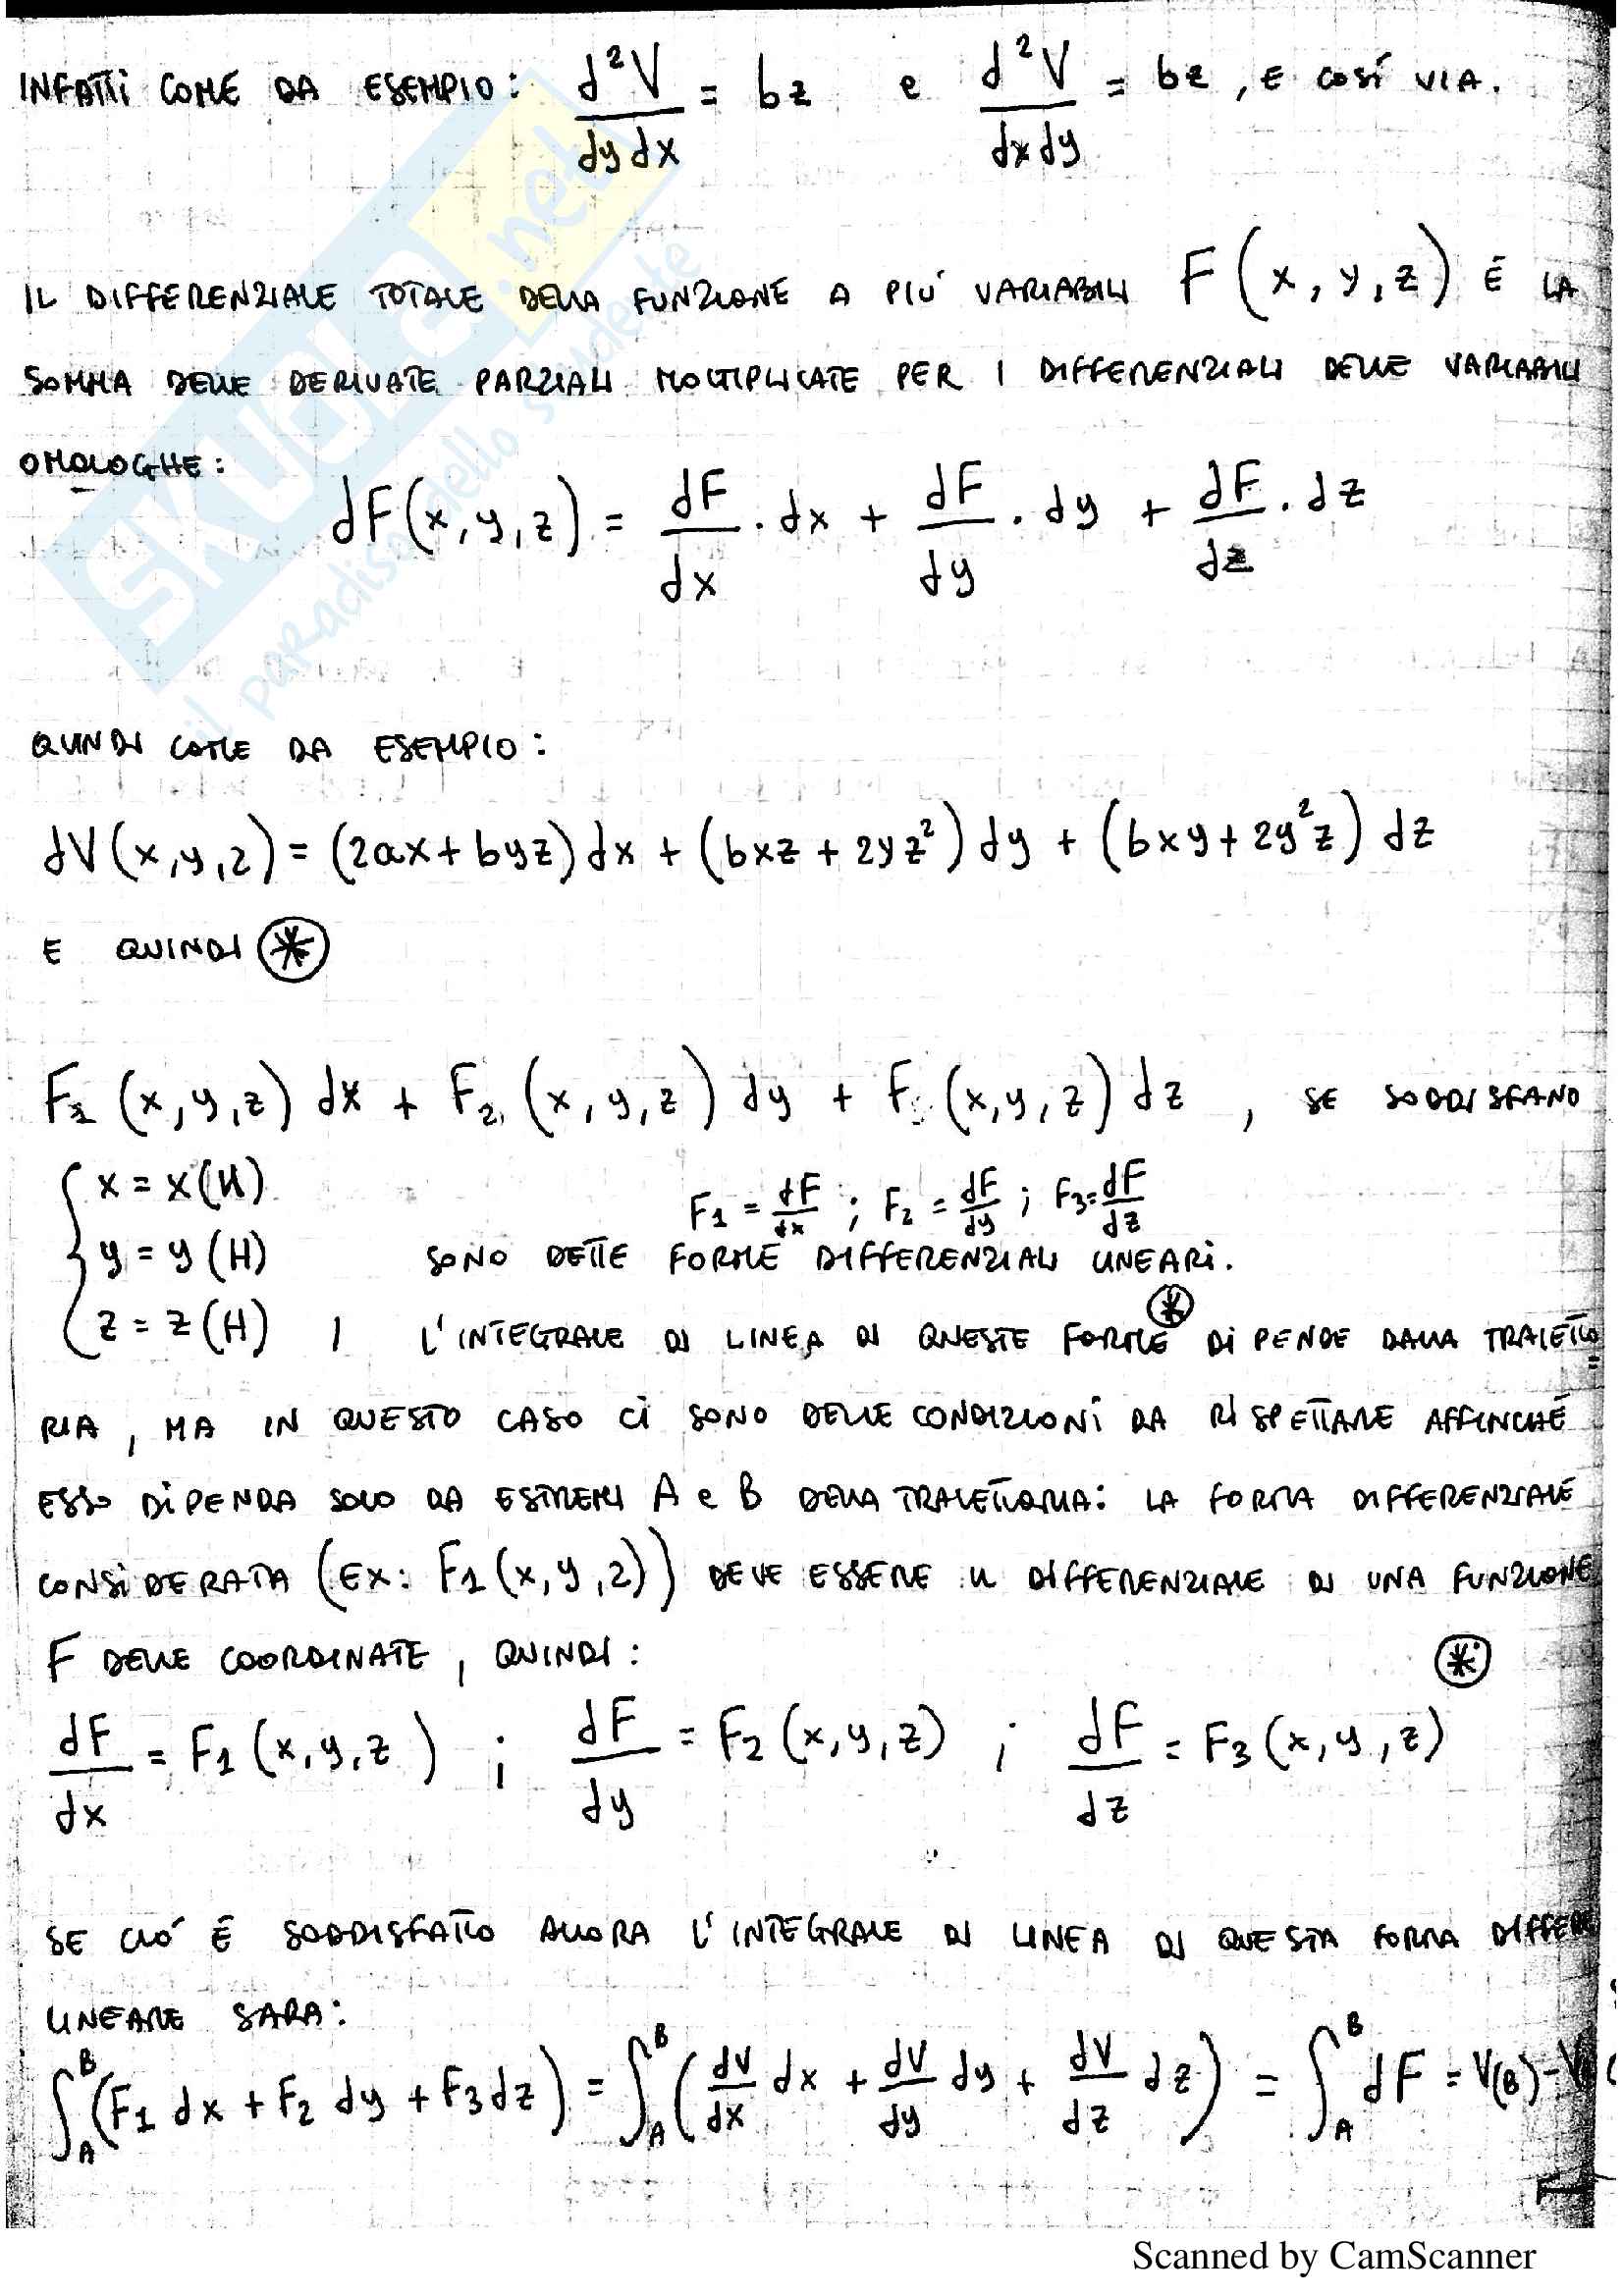 INFATTI COME DA ESEMPIO: d²V/dydx = bz e d²V/dxdy = bz, E COSÍ VIA.
IL DIFFERENZIALE TOTALE DELLA FUNZIONE A PIÚ VARIABILI F(x, y, z) É LA
SOMMA DELLE DERIVATE PARZIALI MOLTIPLICATE PER I DIFFERENZIALI DELLE VARIABILI
OMOLOGHE:
dF(x, y, z) = dF/dx · dx + dF/dy · dy + dF/dz · dz
QUINDI COME DA ESEMPIO:
dV(x, y, z) = (2ax + byz) dx + (bxz + 2yz²) dy + (bxy + 2y²z) dz
E QUINDI *
F1 (x, y, z) dx + F2 (x, y, z) dy + F (x, y, z) dz , SE SODDISFANO
x = x(H)
F1 = dF/dx ; F2 = dF/dy ; F3 = dF/dz
y = y(H) SONO DETTE FORME DIFFERENZIALI LINEARI.
z = z(H) , L'INTEGRALE DI LINEA DI QUESTE FORME * DIPENDE DALLA TRAIETTO=
RIA, MA IN QUESTO CASO CI SONO DELLE CONDIZIONI DA RISPETTARE AFFINCHÉ
ESSO DIPENDA SOLO DA ESTREMI A e B DELLA TRAIETTORIA: LA FORMA DIFFERENZIALE
CONSIDERATA (EX: F1(x, y, z)) DEVE ESSERE IL DIFFERENZIALE DI UNA FUNZIONE
F DELLE COORDINATE, QUINDI: *
dF/dx = F1(x, y, z) ; dF/dy = F2(x, y, z) ; dF/dz = F3(x, y, z)
SE CIÓ É SODDISFATTO ALLORA L'INTEGRALE DI LINEA DI QUESTA FORMA DIFFERE
LINEARE SARA:
∫_A^B (F1 dx + F2 dy + F3 dz) = ∫_A^B (dV/dx dx + dV/dy dy + dV/dz dz) = ∫_A^B dF = V(B) - V
Scanned by CamScanner
SKUOLA.net
il paradiso dello studente